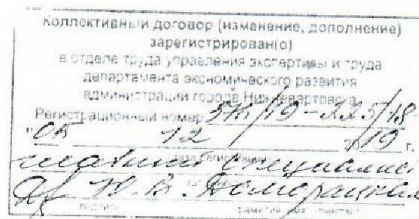 Коллективный договор (изменение, дополнение)
зарегистрирован(о)
в отделе труда управления экспертизы и труда
департамента экономического развития
администрации города Нижневартовска
Регистрационный номер
" 12 19 г.
главный специалист
Ю. В.
подпись